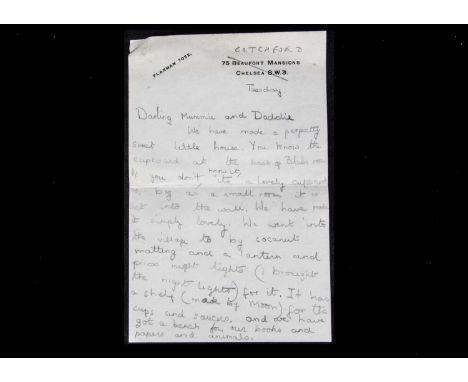 COTCHFORD
FLAXMAN 7075.
75 BEAUFORT MANSIONS
CHELSEA S.W.3.
Tuesday
Darling Mummie and Daddie
We have made a perfectly
sweet little house. You know the
cupboard at the back of
If you don't know it, its a lovely cupboard
big as a small room it is
set into the wall. We have made
it simply lovely. We went into
the village to by coconut
matting and a lantern and
prices night lights (I brought
the night lights) for it. It has
a shelf (made by Moon) for the
cups and saucers, and we have
got a bench for our books and
papers and animals.